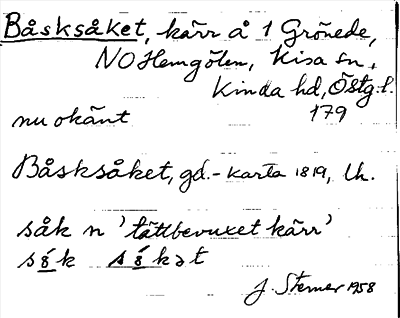 Båsksåket, kärr å 1 Grönede,
NO Hemgölen, Kisa sn,
Kinda hd, Östg. l.
179
nu okänt
Båsksåket, gd.- karta 1819, Uh.
såk n 'tättbevuxet kärr'
J. Sterner 1958